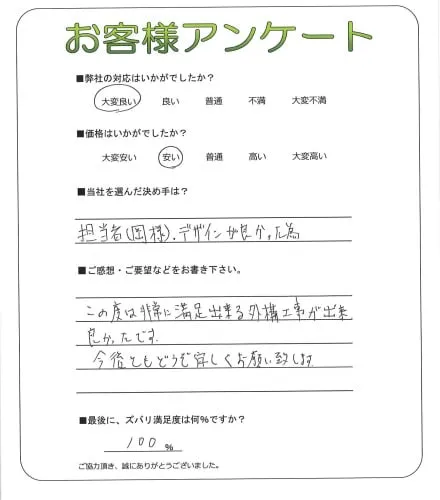 お客様アンケート
■弊社の対応はいかがでしたか?
大変良い 良い 普通 不満 大変不満
■価格はいかがでしたか?
大変安い 安い 普通 高い 大変高い
■当社を選んだ決め手は?
担当者(岡様)・デザインが良かった為
■ご感想・ご要望などをお書き下さい。
この度は非常に満足出来る外構工事が出来
良かったです。
今後ともどうぞ宜しくお願い致します
■最後に、ズバリ満足度は何%ですか?
100%
ご協力頂き、誠にありがとうございました。